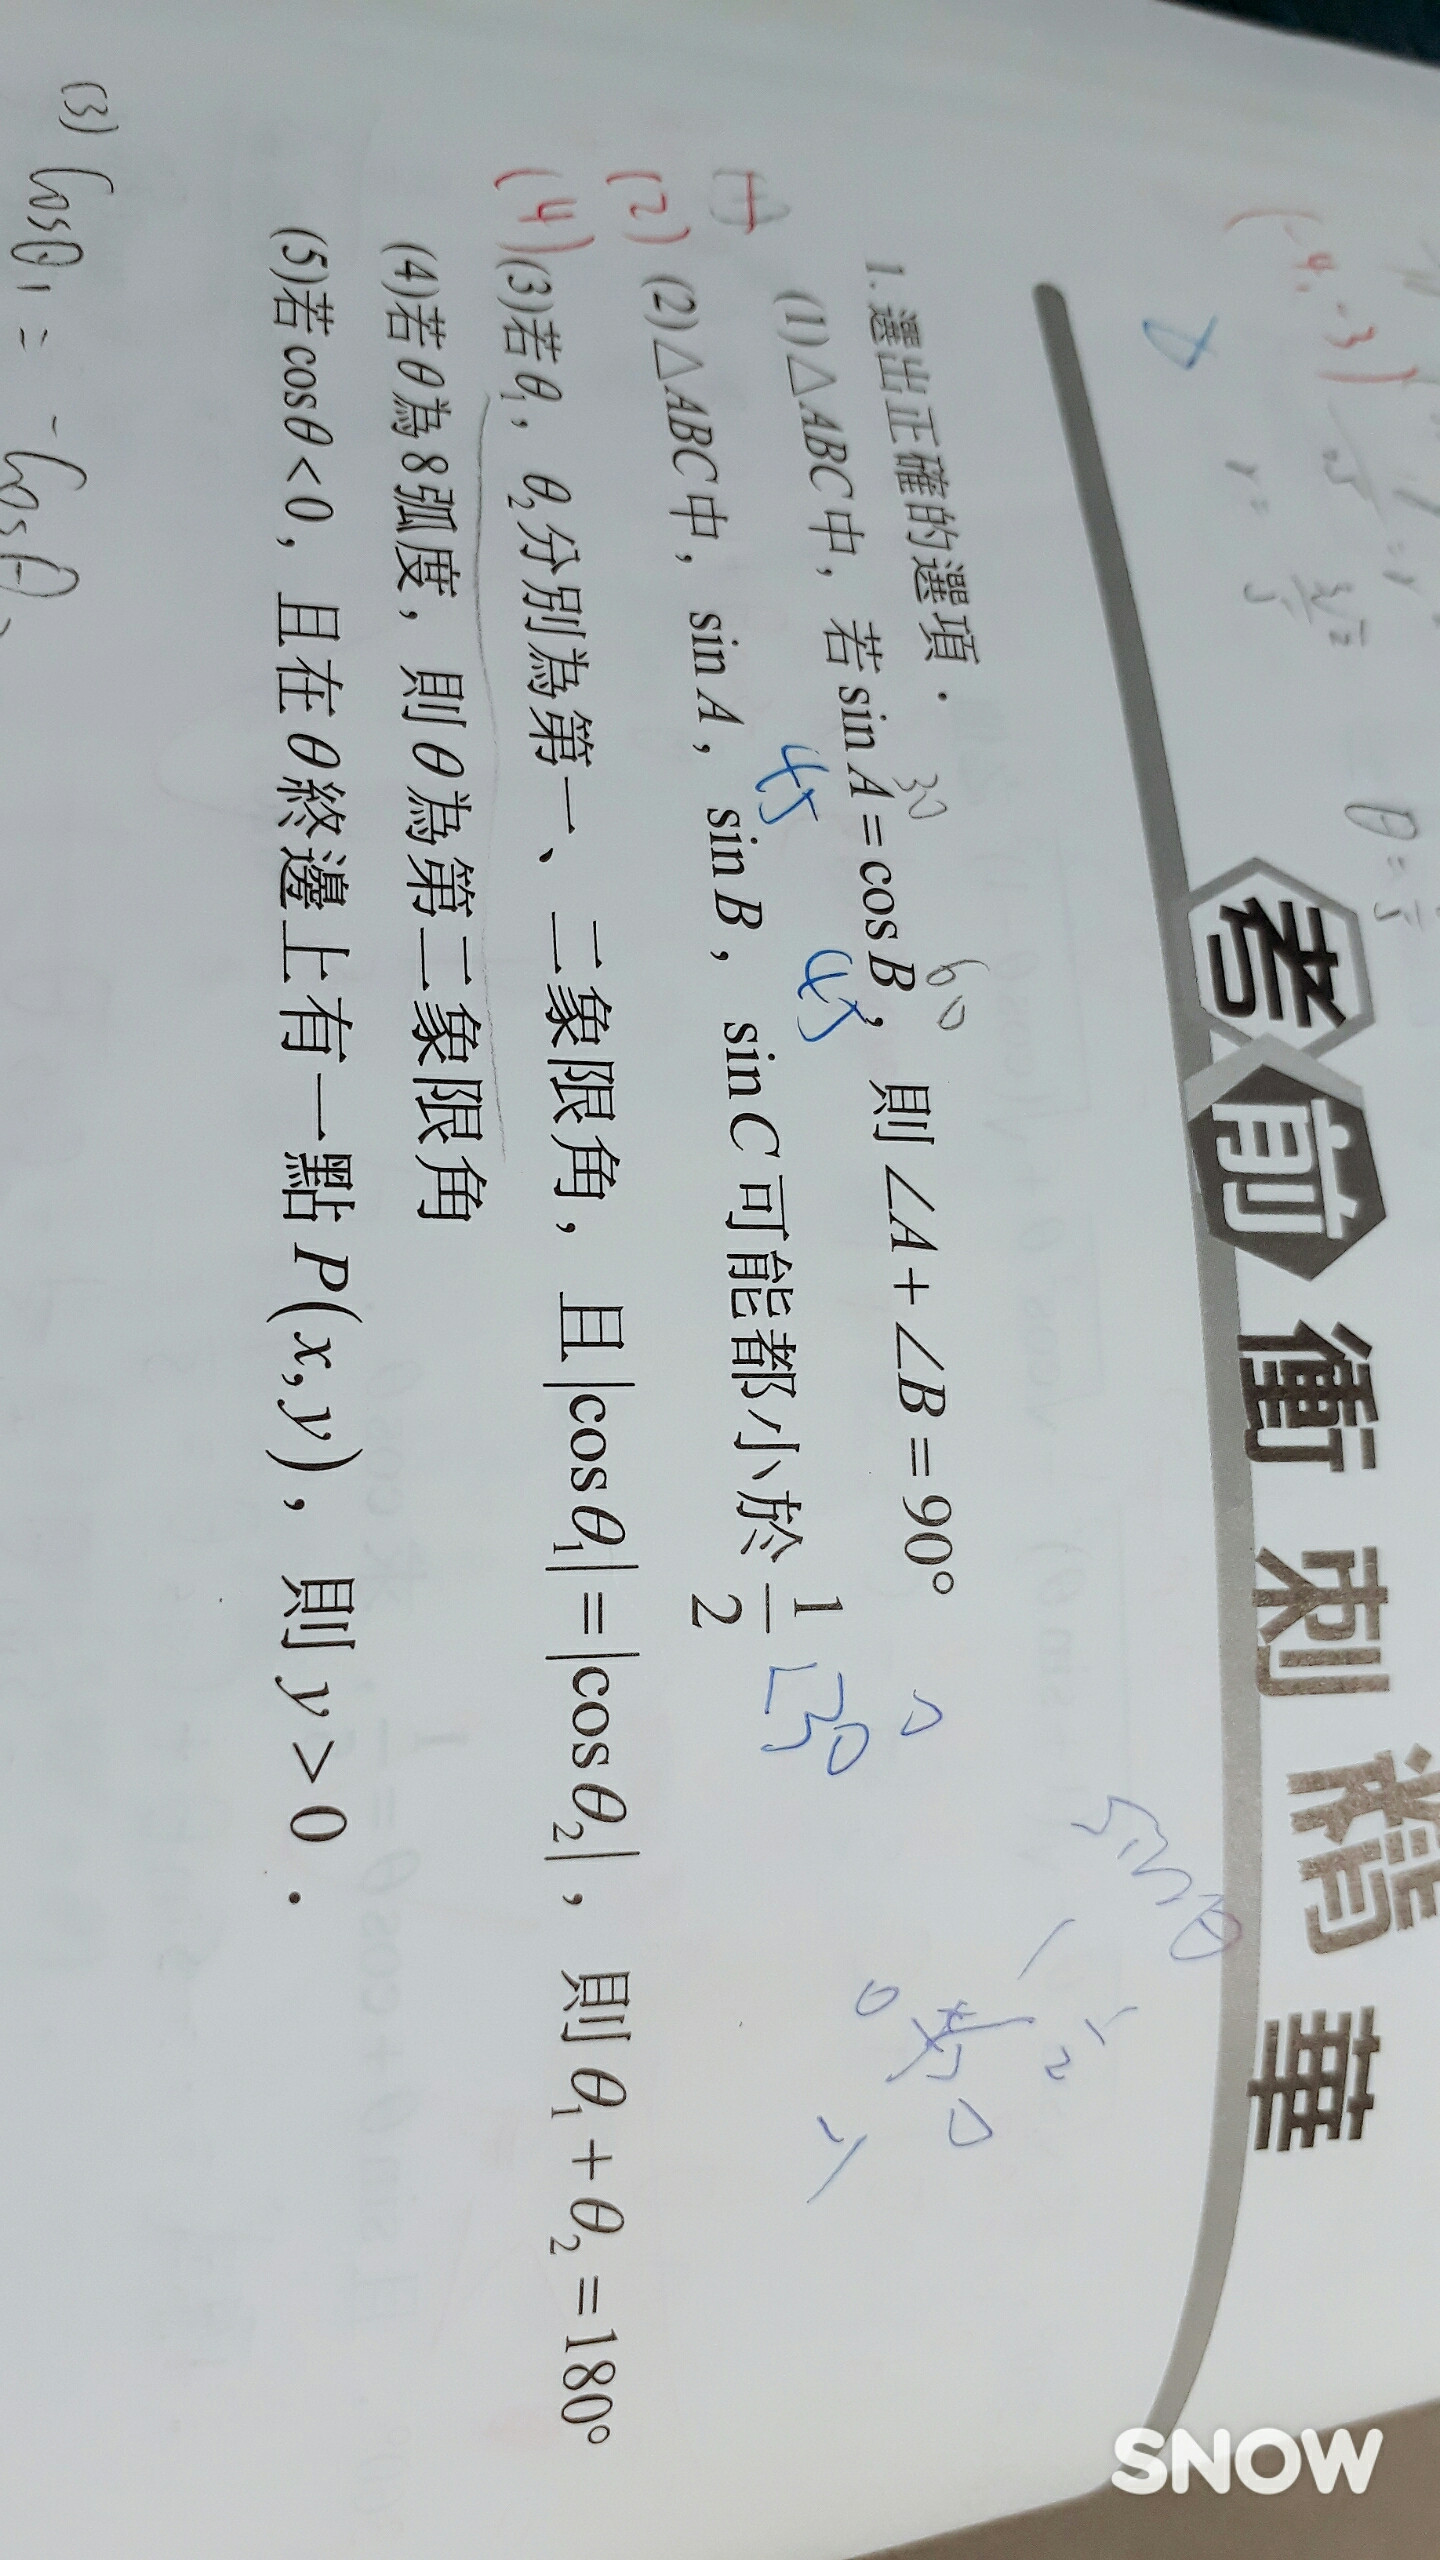 考前衝刺精華
(-4,-3)
θ=
1.選出正確的選項．
30 60
(1)△ABC中，若sin A=cos B，則∠A+∠B=90°
45 45
(2)△ABC中，sin A，sin B，sin C可能都小於1/2
30
(2)
(4)
(3)若θ₁，θ₂分別為第一、二象限角，且|cosθ₁|=|cosθ₂|，則θ₁+θ₂=180°
(4)若θ為8弧度，則θ為第二象限角
(5)若cosθ<0，且在θ終邊上有一點P(x,y)，則y>0．
sinθ
(3) cosθ₁ = -cosθ
SNOW